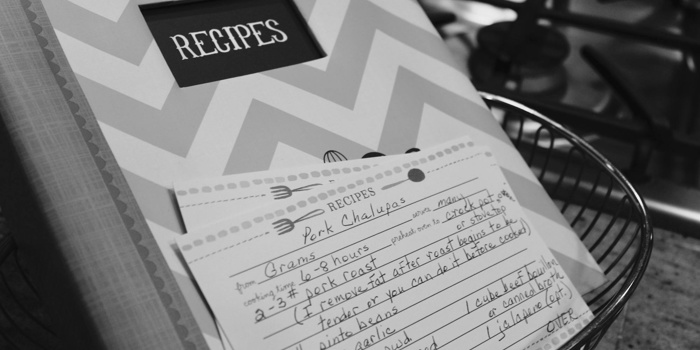 RECIPES
RECIPES
Pork Chalupas
serves many
from Grams
preheat oven to crock pot
or stovetop
cooking time 6-8 hours
2-3# pork roast
(I remove fat after roast begins to be
tender or you can do it before cooked)
pinto beans
garlic
1 cube beef bouillon
or canned broth
1 jalapeno (opt.)
OVER